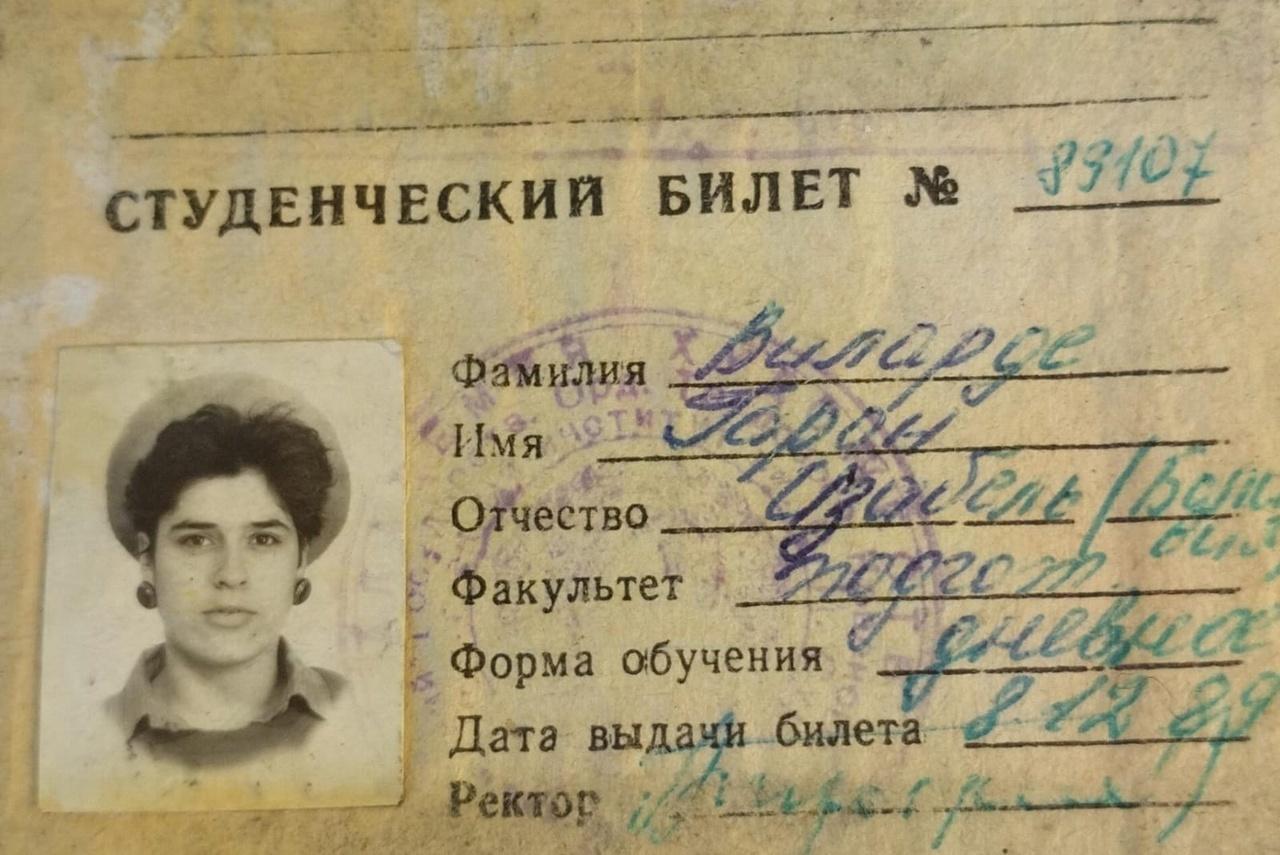 СТУДЕНЧЕСКИЙ БИЛЕТ № 89107
Фамилия Виларде
Имя Гаран
Отчество Изабель /
Факультет подгот.
Форма обучения дневная
Дата выдачи билета 8 12 89
Ректор